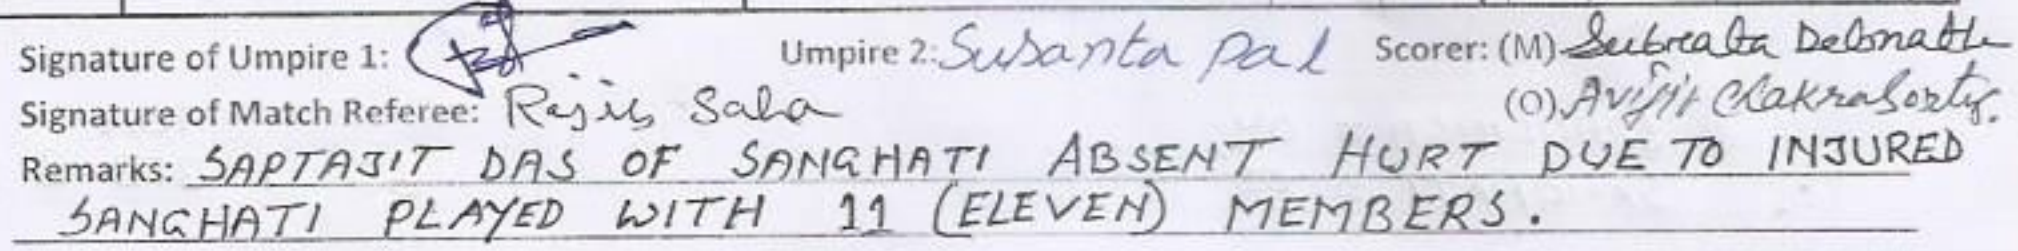 Signature of Umpire 1: Umpire 2: Susanta Pal Scorer: (M) Subrata Debnath
Signature of Match Referee: Rajib Saha (O) Avijit Chakraborty.
Remarks: SAPTAJIT DAS OF SANGHATI ABSENT HURT DUE TO INJURED
SANGHATI PLAYED WITH 11 (ELEVEN) MEMBERS.